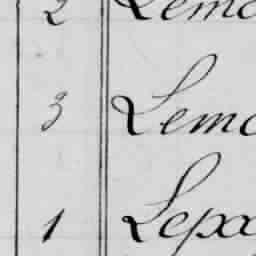 2 Lemo
3 Lemo
1 Lepx